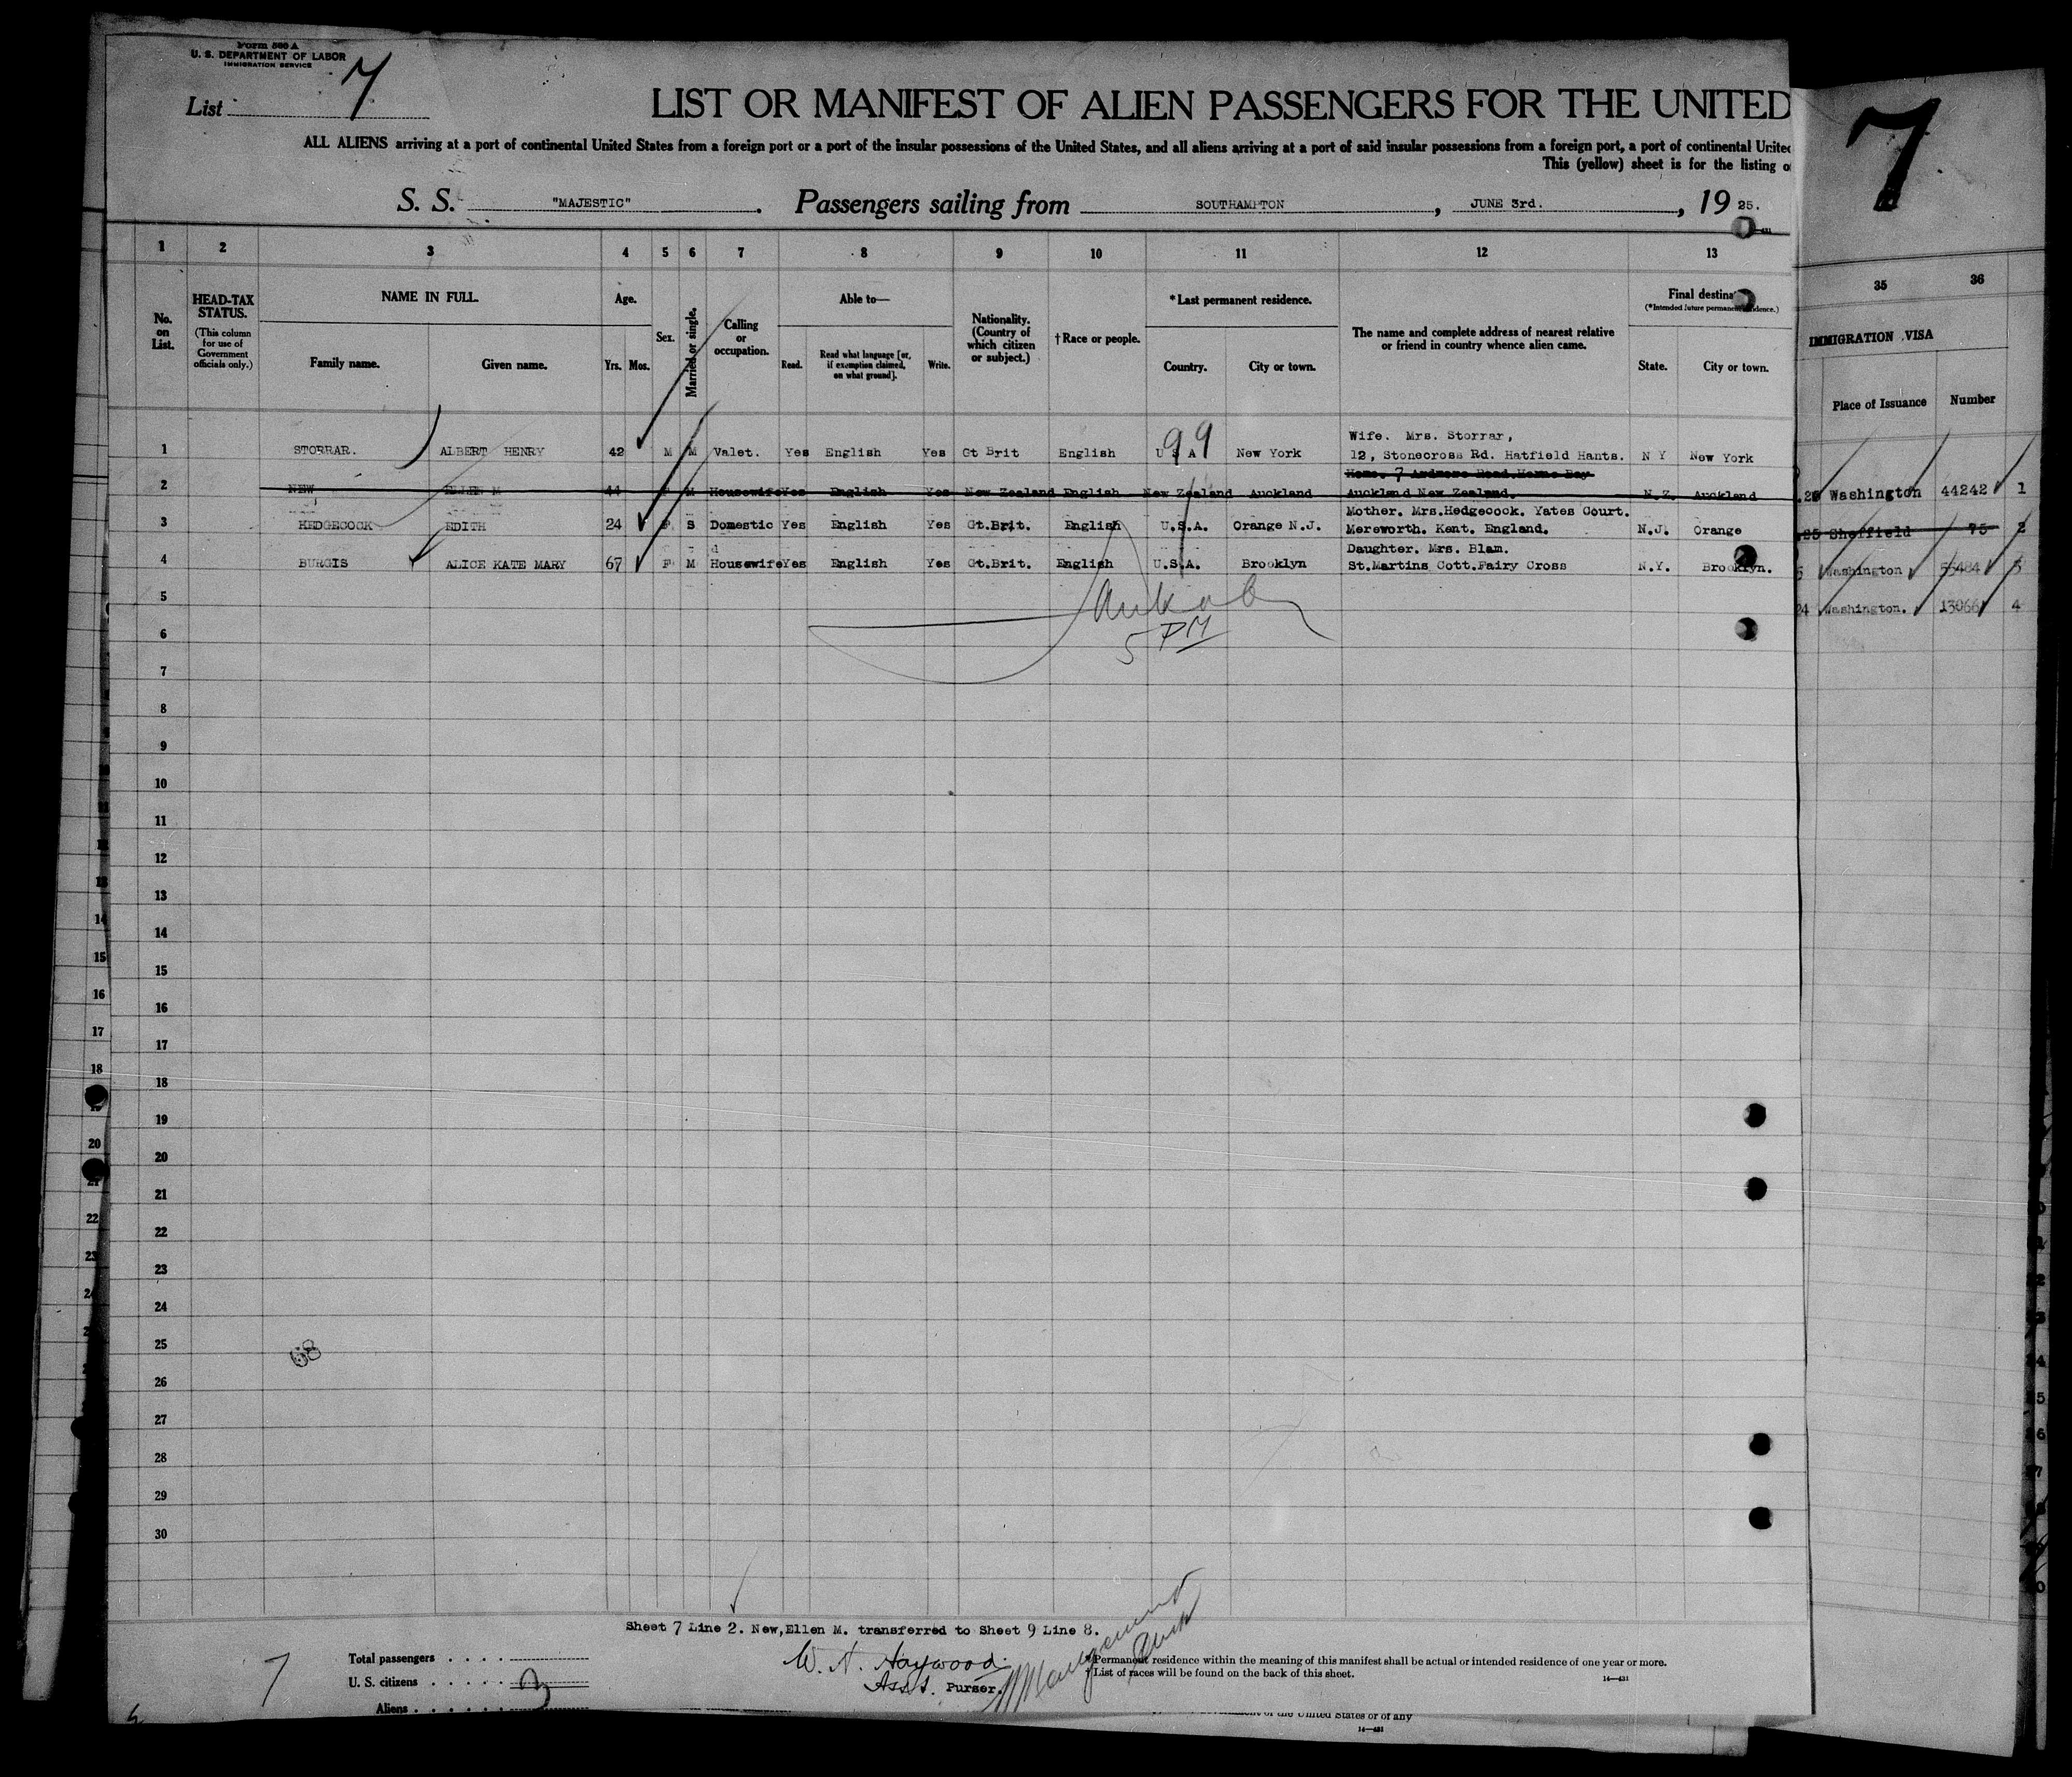 Form 500 A
U. S. DEPARTMENT OF LABOR
IMMIGRATION SERVICE
List 7
LIST OR MANIFEST OF ALIEN PASSENGERS FOR THE UNITED
ALL ALIENS arriving at a port of continental United States from a foreign port or a port of the insular possessions of the United States, and all aliens arriving at a port of said insular possessions from a foreign port, a port of continental United
This (yellow) sheet is for the listing o
S. S. "MAJESTIC" . Passengers sailing from SOUTHAMPTON , JUNE 3rd. , 19 25.
7
1 2 3 4 5 6 7 8 9 10 11 12 13
35 36
No. on List.
HEAD-TAX STATUS. (This column for use of Government officials only.)
NAME IN FULL.
Family name. Given name.
Age.
Yrs. Mos.
Sex.
Married or single.
Calling or occupation.
Able to—
Read. Read what language [or, if exemption claimed, on what ground]. Write.
Nationality. (Country of which citizen or subject.)
†Race or people.
*Last permanent residence.
Country. City or town.
The name and complete address of nearest relative or friend in country whence alien came.
Final destina
(*Intended future permanent
State. City or town.
IMMIGRATION VISA
Place of Issuance Number
99
Wife. Mrs. Storrar,
1 STORRAR. ALBERT HENRY 42 M M Valet. Yes English Yes Gt Brit English U S A New York 12, Stonecross Rd. Hatfield Hants. N Y New York
Home. 7 Ardmore Road Herne Bay
2 NEW ELLEN M 44 F M Housewife Yes English Yes New Zealand English New Zealand Auckland Auckland New Zealand. N.Z. Auckland
Mother. Mrs.Hedgecock. Yates Court.
3 HEDGECOCK EDITH 24 F S Domestic Yes English Yes Gt.Brit. English U.S.A. Orange N.J. Mereworth. Kent. England. N.J. Orange
Daughter. Mrs. Blam.
4 BURGIS ALICE KATE MARY 67 F M Housewife Yes English Yes Gt.Brit. English U.S.A. Brooklyn St.Martins Cott.Fairy Cross N.Y. Brooklyn.
Washington 44242 1
Sheffield 75 2
Washington 55484 3
24 Washington. 13066 4
5
6
5 PM
7
8
9
10
11
12
13
14
15
16
17
18
19
20
21
22
23
24
25
68
26
27
28
29
30
Sheet 7 Line 2. New,Ellen M. transferred to Sheet 9 Line 8.
W. N. Haywood.
Asst. Purser.
Total passengers
U. S. citizens
Aliens
7
3
*Permanent residence within the meaning of this manifest shall be actual or intended residence of one year or more.
†List of races will be found on the back of this sheet.
14—431
of the United States or of any
14—431